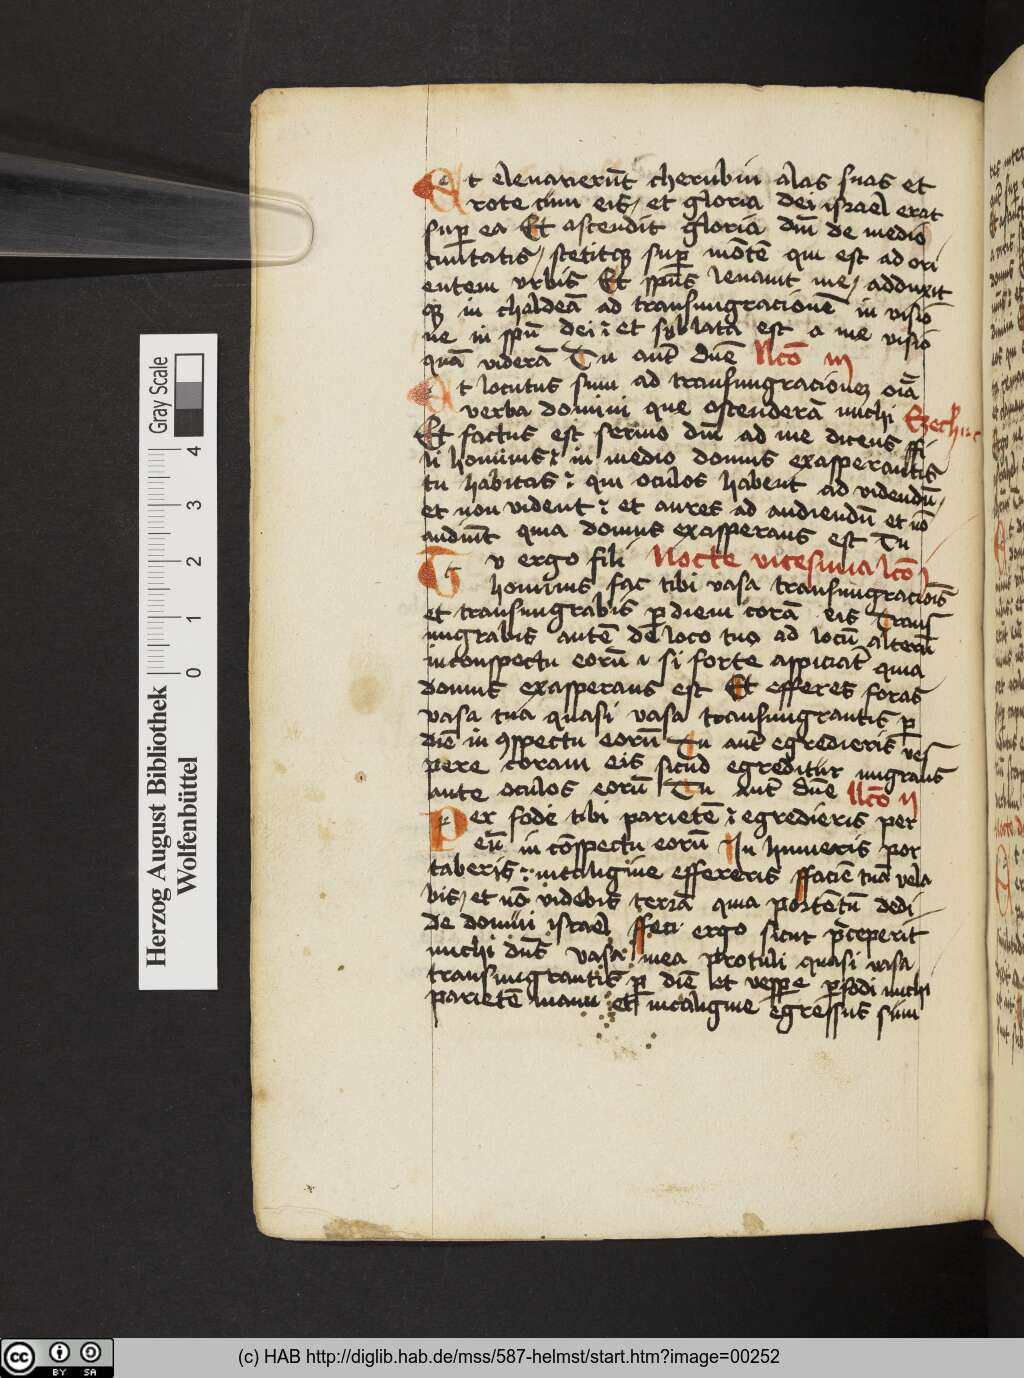 Et elevaverūt cherubin alas suas et
rote cum eis, et gloria dei israel erat
sup̱ ea Et ascendit gloria dn̄i de medio
civitatis, stetitqꝫ sup̱ mōtē qui est ad ori
entem urbis Et spūs levavit me, adduxit
qꝫ in chaldeā ad transmigracionē in visio
ne in spū dei : et sublata est a me visio
quā viderā Tu aut̄ dn̄e Lc̄o iij
Et locutus sum ad transmigracionez oīa
verba domini que ostenderā michi Ezechi
Et factus est sermo dn̄i ad me dicens ffi
li hominis : in medio domus exasperantis
tu habitas : qui oculos habent ad videndū,
et non vident : et aures ad audiendū et nō
audiūt quia domus exasperans est Tu
Tu ergo fili Nocte vicesima lc̄o j
hominis fac tibi vasa transmigracioīs
et transmigrabis ꝑ diem corā eis Trans
migrabis autē de loco tuo ad locū alterū
in conspectu eorū, si forte aspiciāt quia
domus exasperans est Et efferes foras
vasa tua quasi vasa transmigrantis ꝑ
diē in ꝯspectu eorū Tu aut̄ egredieris ves
pere coram eis sicud egreditur migrans
ante oculos eorū Tu aut̄ dn̄e Lc̄o ij
Per fode tibi parietē : egredieris per
eū in cōspectu eorū In humeris por
taberis : in caligine effereris ffaciē tuā vela
bis, et nō videbis terrā quia portētū dedi
de domui israel ffeci ergo sicut p̄ceperit
michi dn̄s vasa mea protuli quasi vasa
transmigrantis ꝑ diē et vesp̱e ꝑfodi michi
parietē manu et in caligine egressus sum
Herzog August Bibliothek
Wolfenbüttel
0 1 2 3 4
Gray Scale
cc BY SA
(c) HAB http://diglib.hab.de/mss/587-helmst/start.htm?image=00252